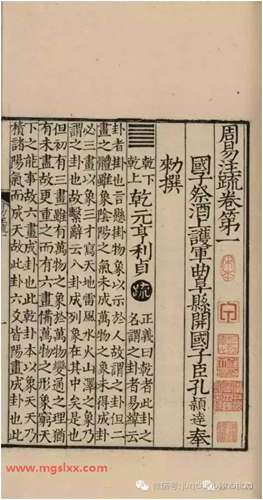 周易注疏卷第一
國子祭酒上護軍曲阜縣開國子臣孔穎達奉
勑撰
乾下
乾上
乾元亨利貞
疏
正義曰乾者此卦之
名謂之卦者易緯云
卦者掛也言懸掛物象以示於人故謂之卦但二
畫之體雖象陰陽之氣未成萬物之象未得成卦
必三畫以象三才寫天地雷風水火山澤之象乃
謂之卦也故繫辭云八卦成列象在其中矣是也
但初有三畫雖有萬物之象於萬物變通之理猶
有未盡故更重之而有六畫備萬物之形象窮天
下之能事故六畫成卦也此乾卦本以象天天乃
積諸陽氣而成天故此卦六爻皆陽畫成卦也此
www.mgslxx.com